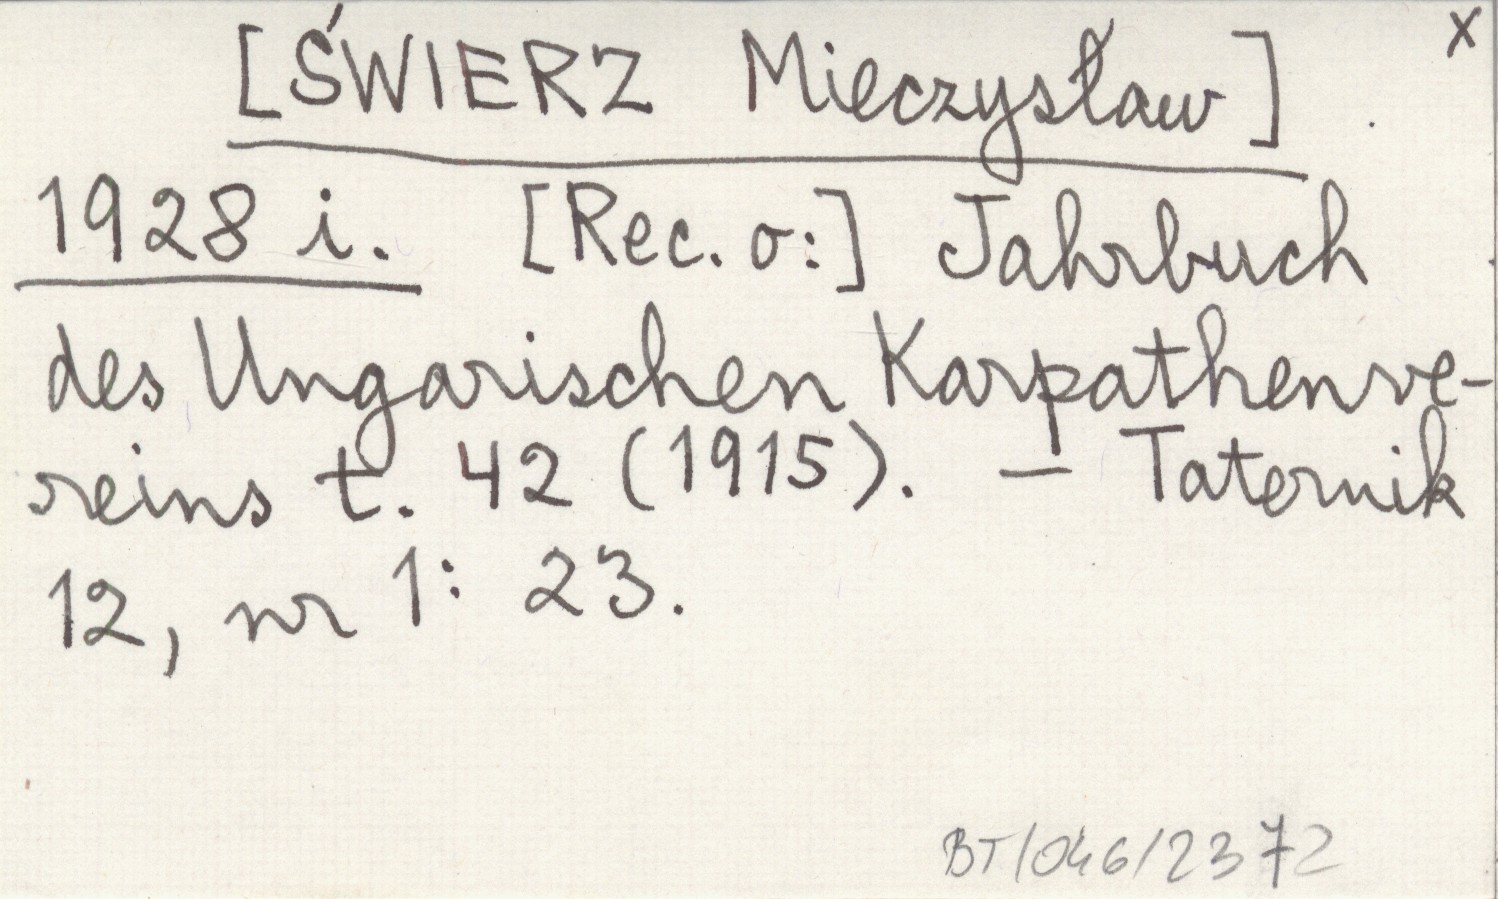 x
[ŚWIERZ Mieczysław]
1928 i. [Rec. o:] Jahrbuch
des Ungarischen Karpathenve-
reins t. 42 (1915). — Taternik
12, nr 1: 23.
BT/046/2372